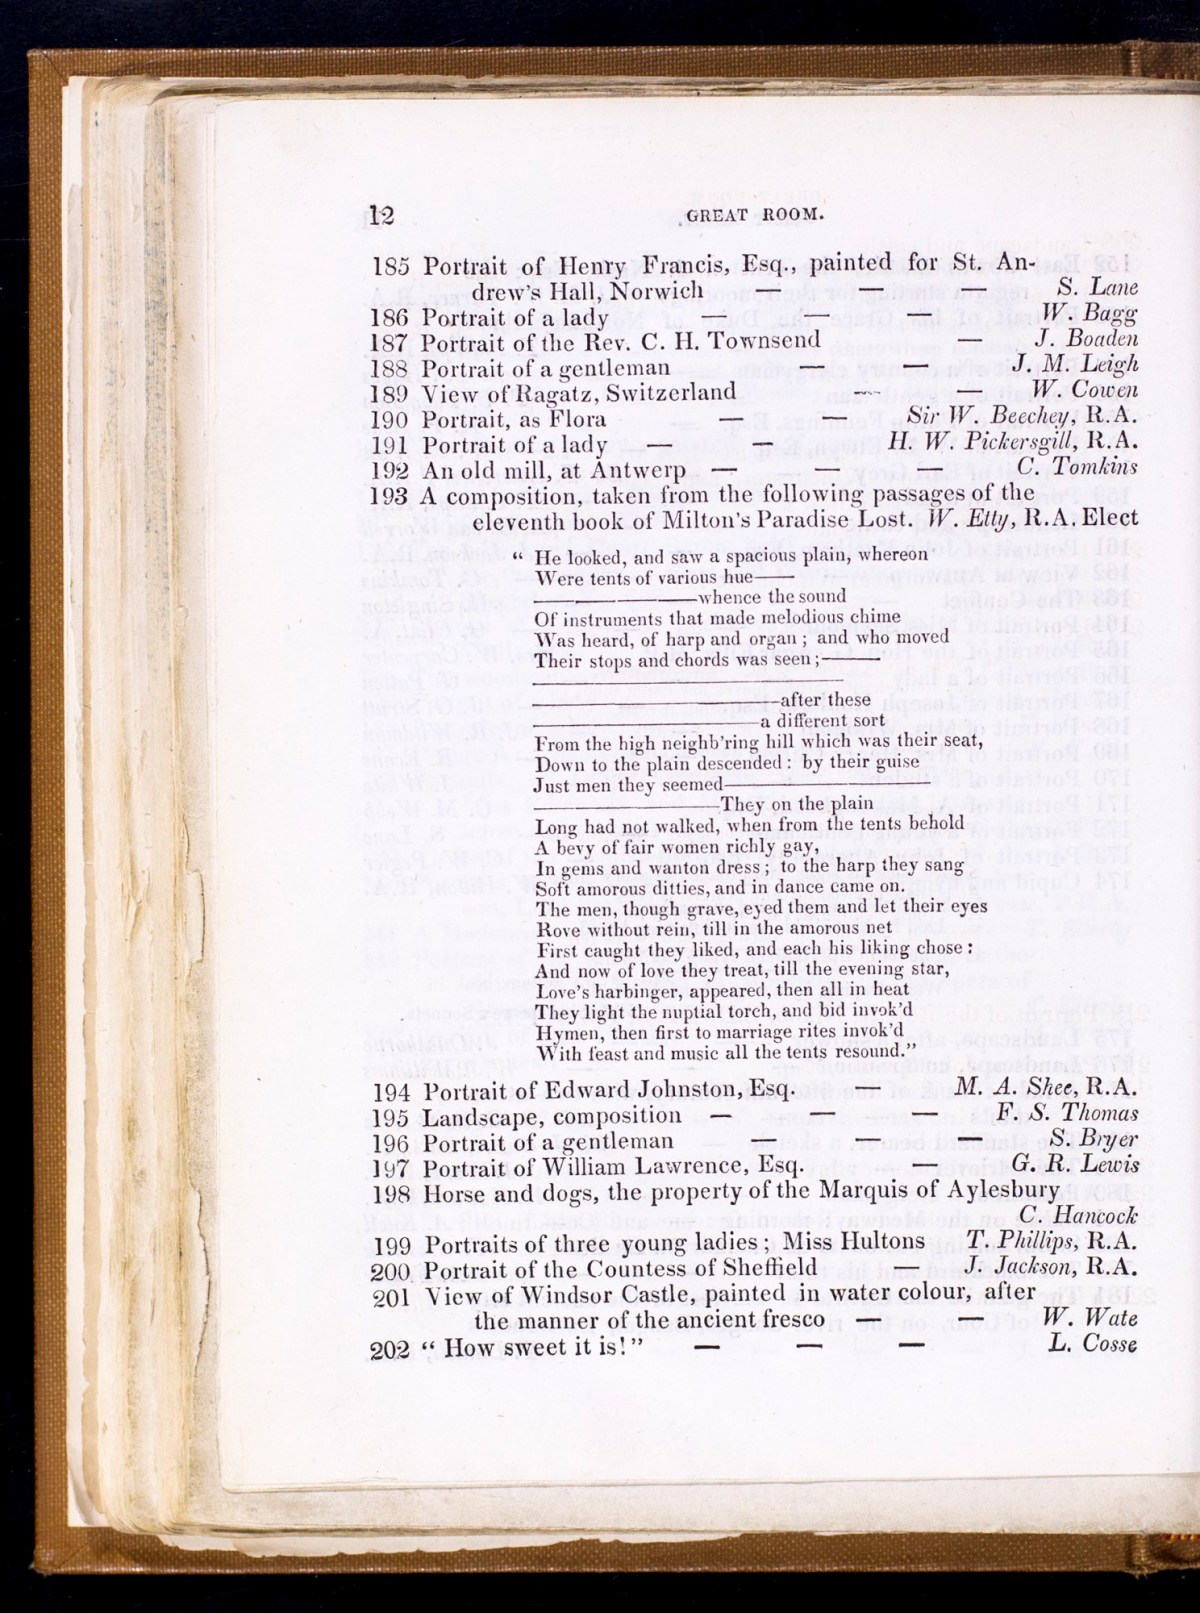 12 GREAT ROOM.
185 Portrait of Henry Francis, Esq., painted for St. An-
drew's Hall, Norwich — — — S. Lane
186 Portrait of a lady — — — W. Bagg
187 Portrait of the Rev. C. H. Townsend — J. Boaden
188 Portrait of a gentleman — — J. M. Leigh
189 View of Ragatz, Switzerland — — W. Cowen
190 Portrait, as Flora — — Sir W. Beechey, R.A.
191 Portrait of a lady — — H. W. Pickersgill, R.A.
192 An old mill, at Antwerp — — — C. Tomkins
193 A composition, taken from the following passages of the
eleventh book of Milton's Paradise Lost. W. Etty, R.A. Elect
“ He looked, and saw a spacious plain, whereon
Were tents of various hue——
————————whence the sound
Of instruments that made melodious chime
Was heard, of harp and organ ; and who moved
Their stops and chords was seen ;———
———————————————
————————————after these
———————————a different sort
From the high neighb'ring hill which was their seat,
Down to the plain descended : by their guise
Just men they seemed——————————
—————————They on the plain
Long had not walked, when from the tents behold
A bevy of fair women richly gay,
In gems and wanton dress ; to the harp they sang
Soft amorous ditties, and in dance came on.
The men, though grave, eyed them and let their eyes
Rove without rein, till in the amorous net
First caught they liked, and each his liking chose :
And now of love they treat, till the evening star,
Love's harbinger, appeared, then all in heat
They light the nuptial torch, and bid invok'd
Hymen, then first to marriage rites invok'd
With feast and music all the tents resound.”
194 Portrait of Edward Johnston, Esq. — M. A. Shee, R.A.
195 Landscape, composition — — — F. S. Thomas
196 Portrait of a gentleman — — — S. Bryer
197 Portrait of William Lawrence, Esq. — — G. R. Lewis
198 Horse and dogs, the property of the Marquis of Aylesbury
C. Hancock
199 Portraits of three young ladies ; Miss Hultons T. Phillips, R.A.
200 Portrait of the Countess of Sheffield — J. Jackson, R.A.
201 View of Windsor Castle, painted in water colour, after
the manner of the ancient fresco — — W. Wate
202 “ How sweet it is! ” — — — L. Cosse